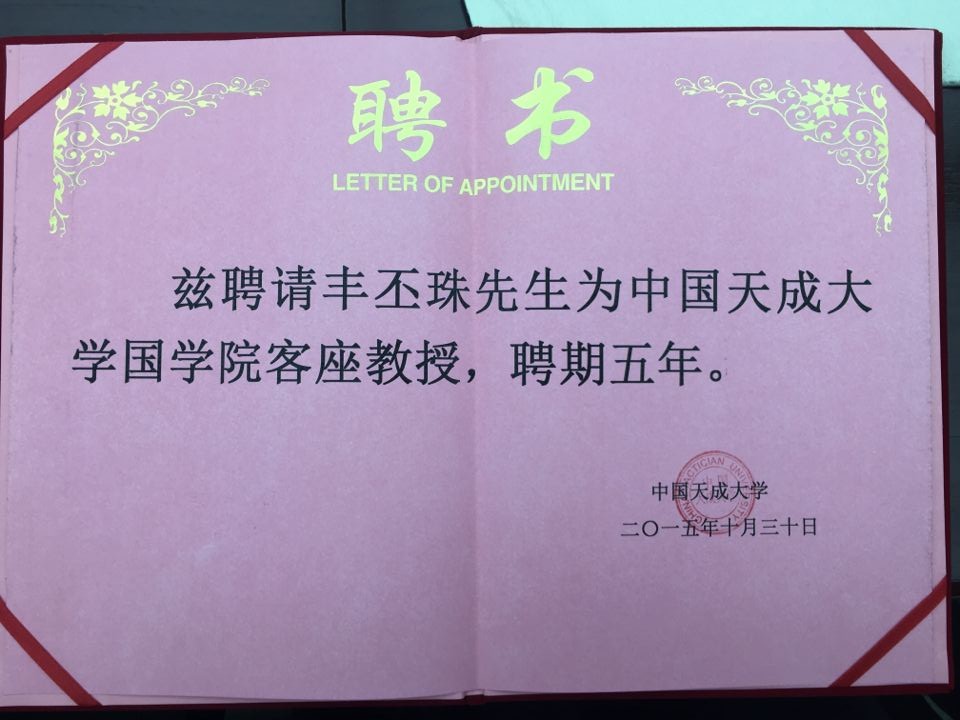 聘书
LETTER OF APPOINTMENT
兹聘请丰丕珠先生为中国天成大
学国学院客座教授，聘期五年。
中国天成大学
二〇一五年十月三十日
TACTICIAN UNIVERSITY